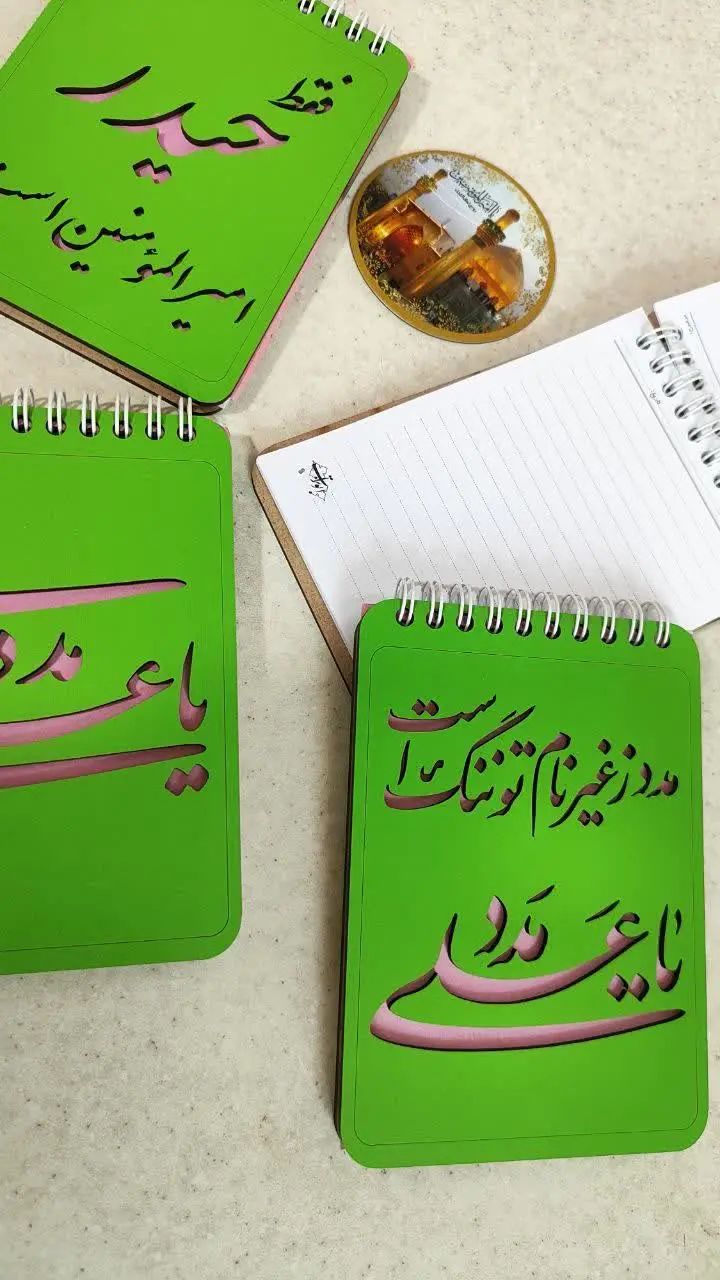 فقط
حیدر
امیرالمؤمنین است
یا ع
مدد
مدد ز غیر نام تو ننگ است
یا علی مدد